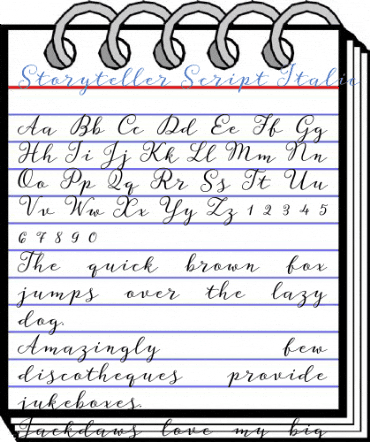 Storyteller Script Italic
Aa Bb Cc Dd Ee Ff Gg
Hh Ii Jj Kk Ll Mm Nn
Oo Pp Qq Rr Ss Tt Uu
Vv Ww Xx Yy Zz 1 2 3 4 5
6 7 8 9 0
The quick brown fox
jumps over the lazy
dog.
Amazingly few
discotheques provide
jukeboxes.
Jackdaws love my big